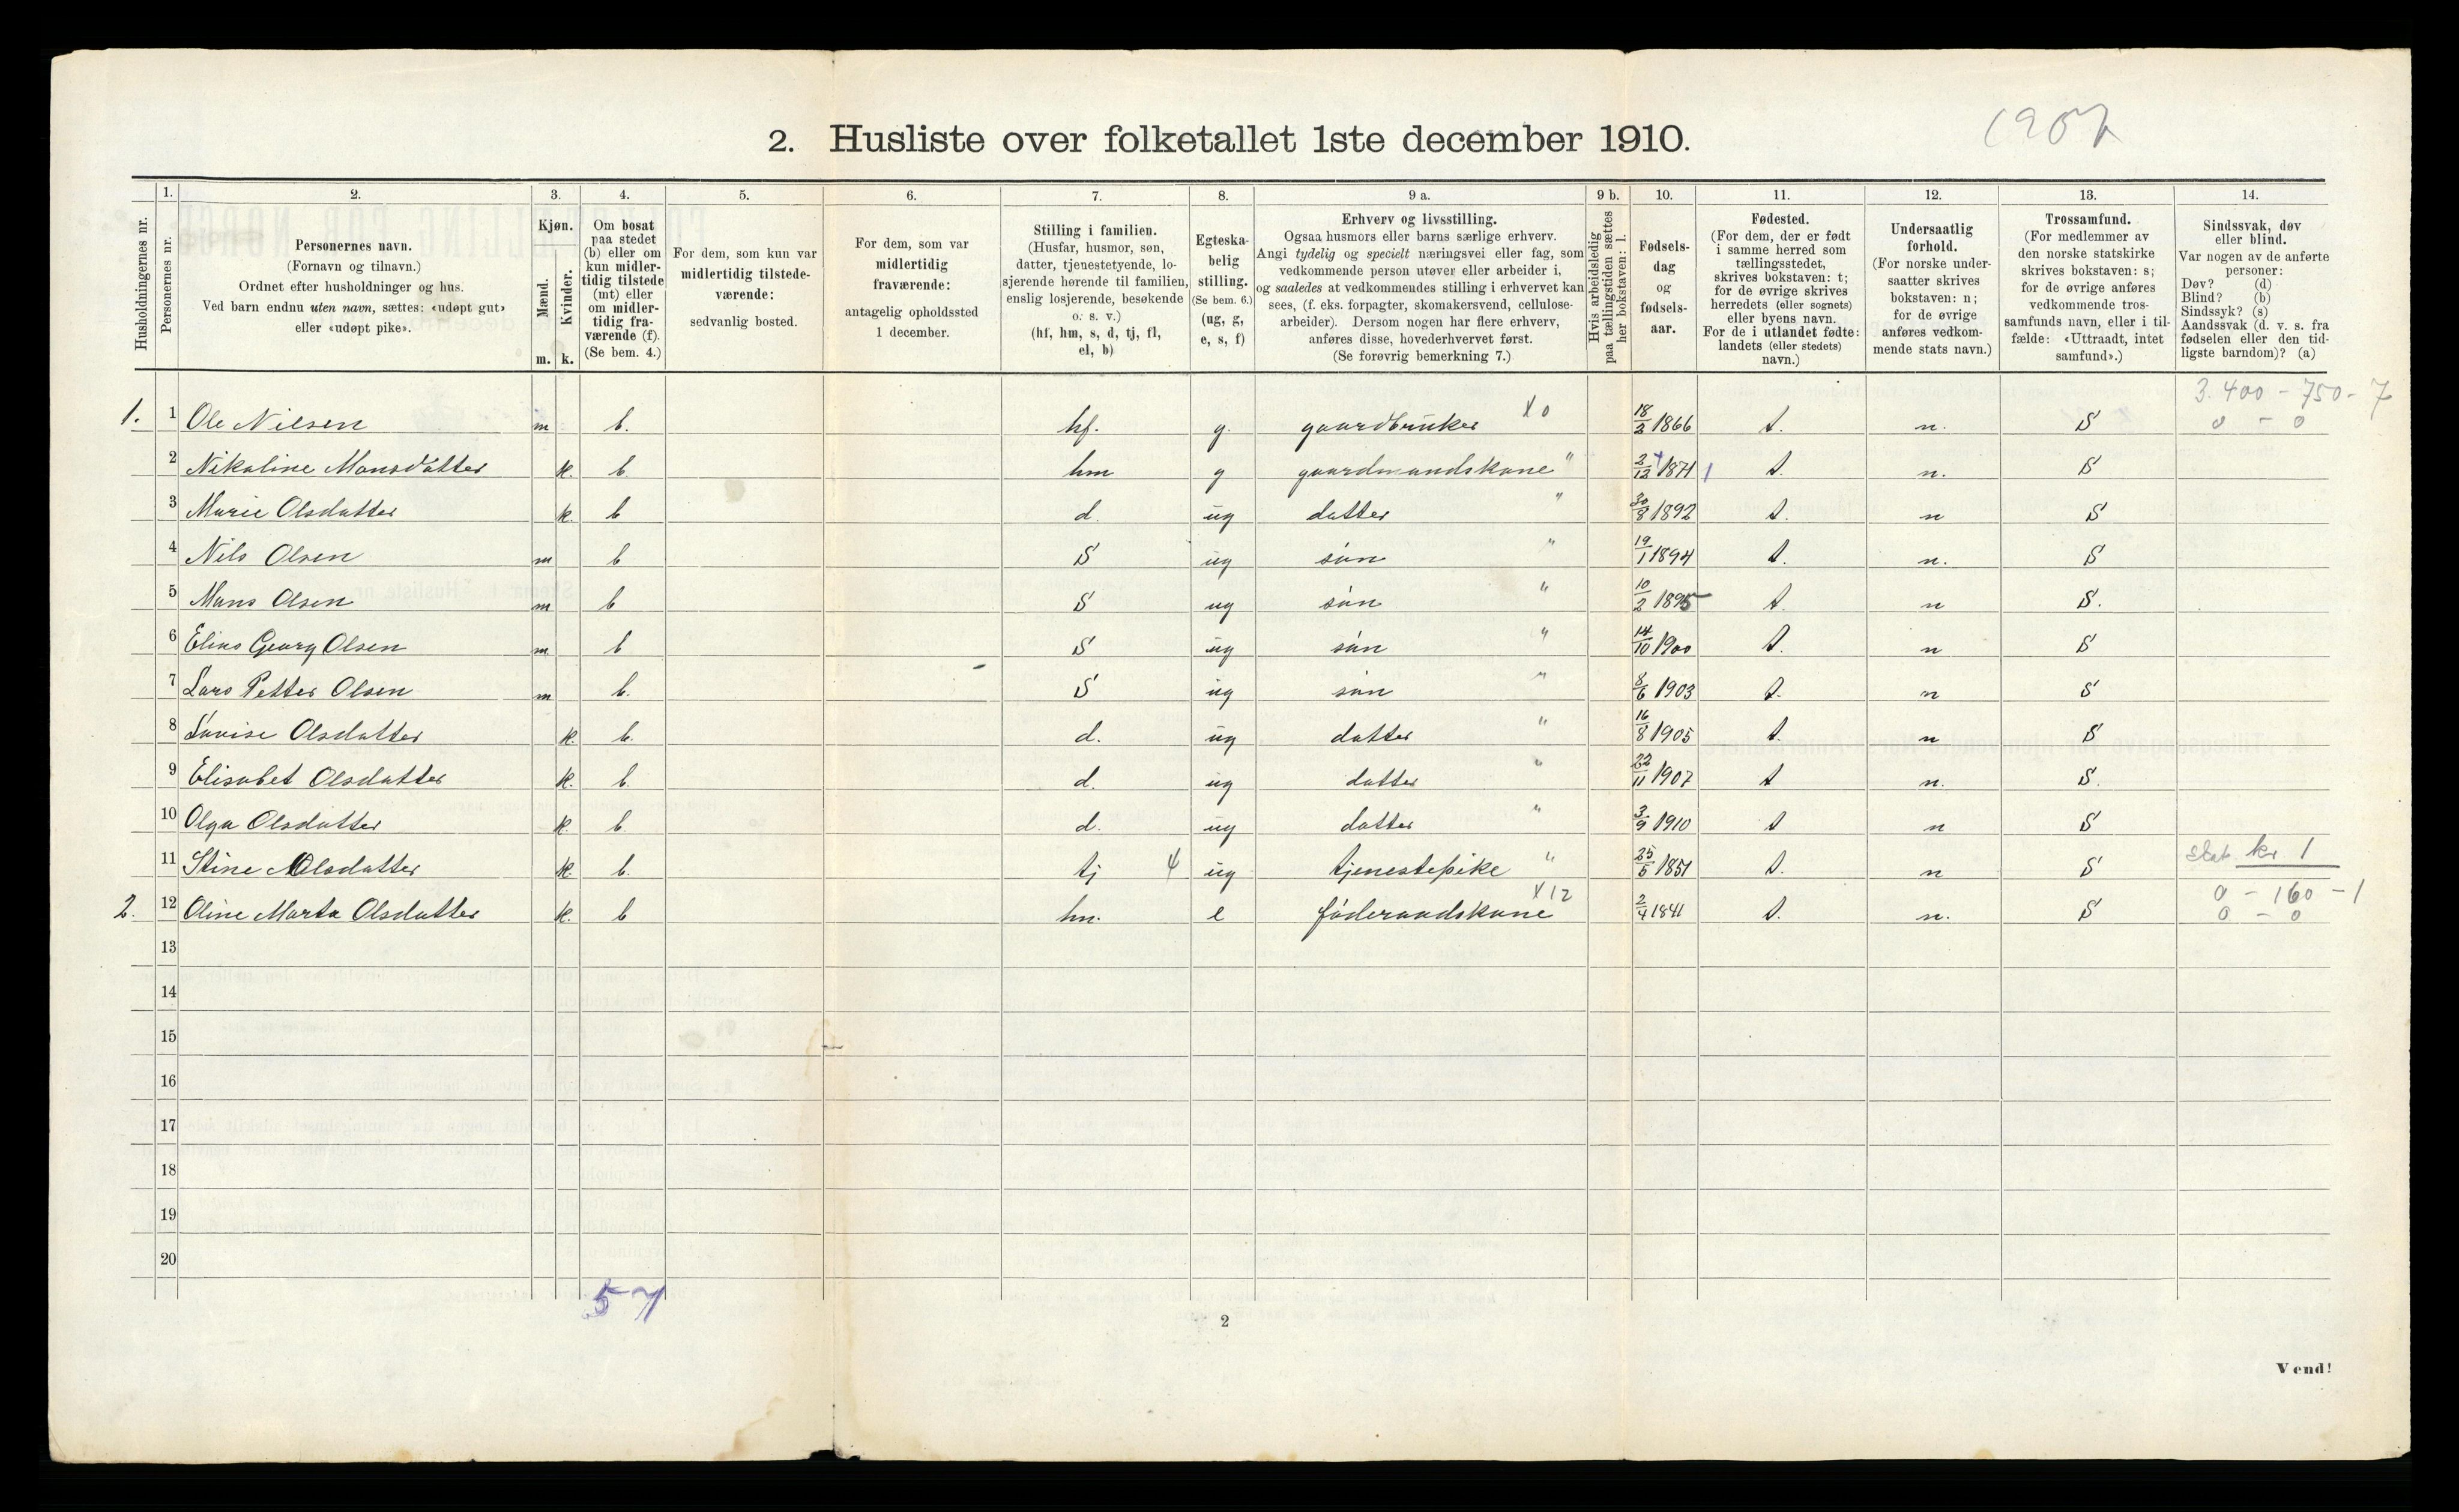 2. Husliste over folketallet 1ste december 1910.
Husholdningernes nr.
1.
Personernes nr.
2.
Personernes navn.
(Fornavn og tilnavn.)
Ordnet efter husholdninger og hus.
Ved barn endnu uten navn, sættes: «udøpt gut»
eller «udøpt pike».
3.
Kjøn.
Mænd.
Kvinder.
m. k.
4.
Om bosat
paa stedet
(b) eller om
kun midler-
tidig tilstede
(mt) eller
om midler-
tidig fra-
værende (f).
(Se bem. 4.)
5.
For dem, som kun var
midlertidig tilstede-
værende:
sedvanlig bosted.
6.
For dem, som var
midlertidig
fraværende:
antagelig opholdssted
1 december.
7.
Stilling i familien.
(Husfar, husmor, søn,
datter, tjenestetyende, lo-
sjerende hørende til familien,
enslig losjerende, besøkende
o. s. v.)
(hf, hm, s, d, tj, fl,
el, b)
8.
Egteska-
belig
stilling.
(Se bem. 6.)
(ug, g,
e, s, f)
9 a.
Erhverv og livsstilling.
Ogsaa husmors eller barns særlige erhverv.
Angi tydelig og specielt næringsvei eller fag, som
vedkommende person utøver eller arbeider i,
og saaledes at vedkommendes stilling i erhvervet kan
sees, (f. eks. forpagter, skomakersvend, cellulose-
arbeider). Dersom nogen har flere erhverv,
anføres disse, hovederhvervet først.
(Se forøvrig bemerkning 7.)
9 b.
Hvis arbeidsledig
paa tællingstiden sættes
her bokstaven: l.
10.
Fødsels-
dag
og
fødsels-
aar.
11.
Fødested.
(For dem, der er født
i samme herred som
tællingsstedet,
skrives bokstaven: t;
for de øvrige skrives
herredets (eller sognets)
eller byens navn.
For de i utlandet fødte:
landets (eller stedets)
navn.)
12.
Undersaatlig
forhold.
(For norske under-
saatter skrives
bokstaven: n;
for de øvrige
anføres vedkom-
mende stats navn.)
13.
Trossamfund.
(For medlemmer av
den norske statskirke
skrives bokstaven: s;
for de øvrige anføres
vedkommende tros-
samfunds navn, eller i til-
fælde: «Uttraadt, intet
samfund».)
14.
Sindssvak, døv
eller blind.
Var nogen av de anførte
personer:
Døv? (d)
Blind? (b)
Sindssyk? (s)
Aandssvak (d. v. s. fra
fødselen eller den tid-
ligste barndom)? (a)
3.400 - 750 - 7
1. 1 Ole Nilsen m b. hf. g. gaardbruker X 0 18/2 1866 t. n. S 0 - 0
2 Nikoline Monsdatter k. b. hm g gaardmandskone " 2/12 1871 t. n. S
3 Marie Olsdatter k. b d. ug datter " 30/8 1892 t. n S
4 Nils Olsen m b S ug søn " 19/1 1894 t. n. S
5 Mons Olsen m b S ug søn " 10/2 1895 t. n S.
6 Elias Georg Olsen m b S ug søn " 14/10 1900 t. n S
7 Lars Petter Olsen m b. S ug søn " 8/6 1903 t. n S
8 Lovise Olsdatter k. b. d. ug datter " 16/8 1905 t. n S
9 Elisabet Olsdatter k. b. d. ug datter " 22/11 1907 t n. S.
10 Olga Olsdatter k. b. d. ug datter " 3/9 1910 t n S
11 Stine Olsdatter k b. tj 4 ug tjenestepike " 25/5 1851 t. n S kr 1
2. 12 Oline Marta Olsdatter k. b hm. e føderaadskone X 12 2/4 1841 t. n. S 0 - 160 - 1
0 - 0
13
14
15
16
17
18
19
20
5 7
2
Vend!